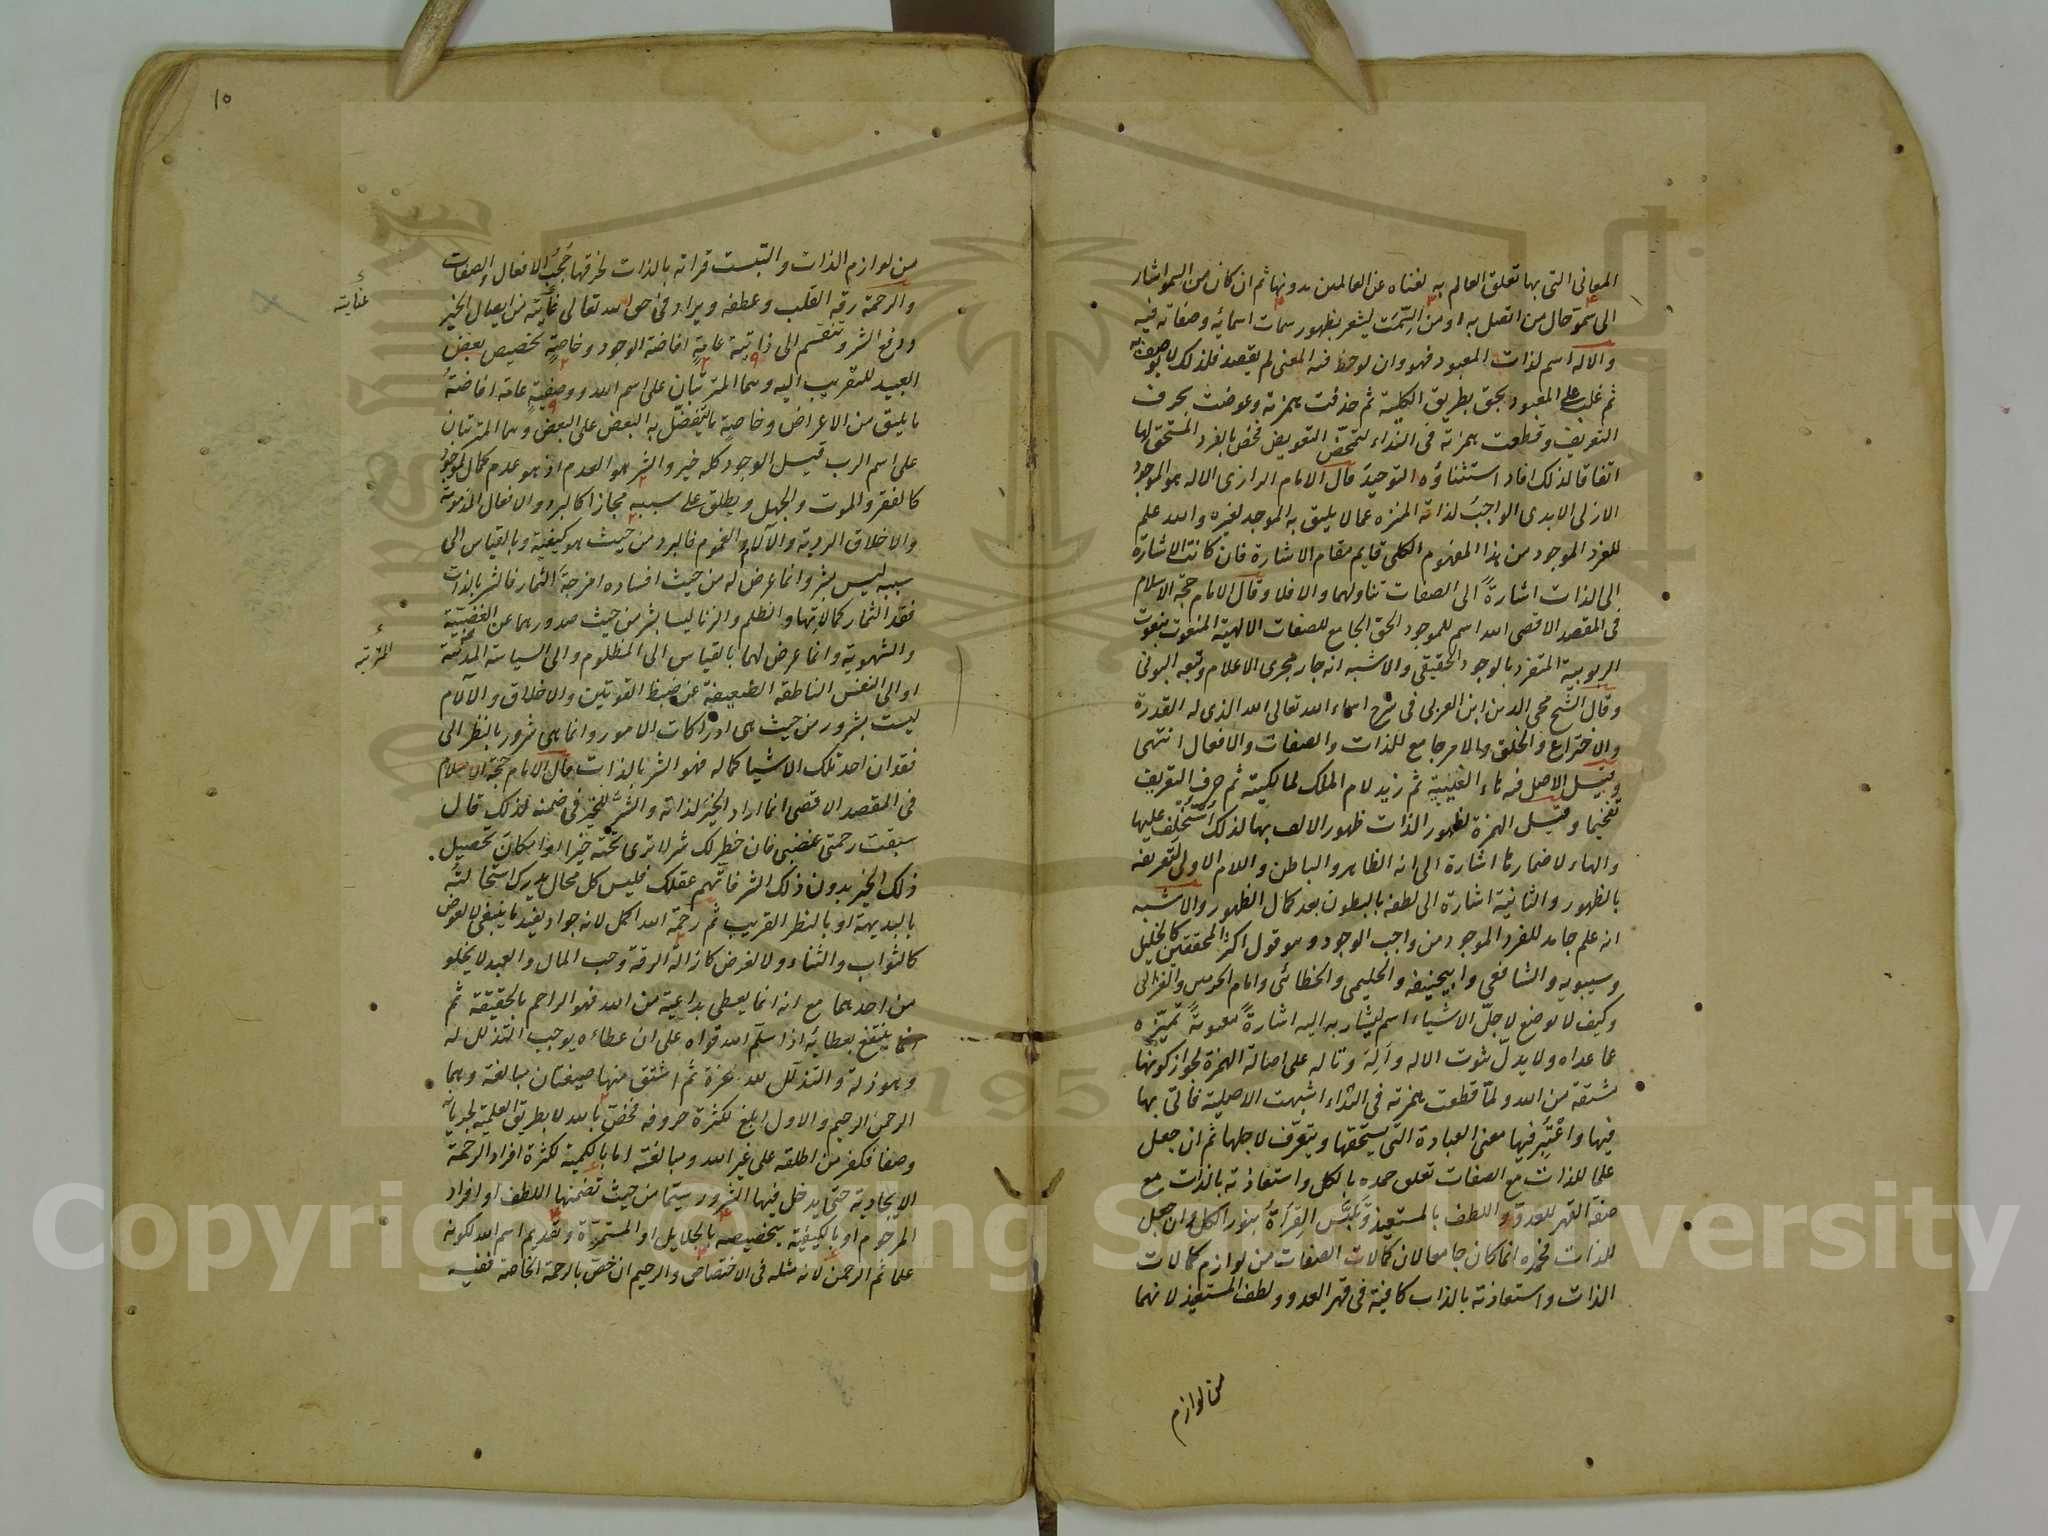 المعاني التي بها تعلق العالم به لغناه عن العالمين بدونها ثم ان كان من السمو اشار
الى سمو حال من اتصل به او من السمت ليشعر بظهور سمات اسمائه وصفاته فيه
والاله اسم لذات المعبود فهو وان لوحظ فيه المعنى لم يقصد فلذلك لا يوصف به
ثم غلب على المعبود بحق بطريق الكلية ثم حذفت همزته وعوضت بحرف
التعريف وقطعت همزته في النداء لتمحض التعويض فخص بالفرد المستحق لها
اتفاقا لذلك افاد استثناؤه التوحيد قال الامام الرازى الاله هو الموجود
الازلى الابدى الواجب لذاته المنزه عما لا يليق به الموجد لغيره والله علم
للفرد الموجود من هذا المفهوم الكلى قايم مقام الاشارة فان كانت الاشارة
الى الذات اشارة الى الصفات تناولهما والا فلا وقال الامام حجة الاسلام
في المقصد الاقصى الله اسم للموجود الحق الجامع للصفات الالهية المنعوت بنعوت
الربوبية المتفرد بالوجود الحقيقي والاشبه انه جار مجرى الاعلام وتبعه البونى
وقال الشيخ محى الدين ابن العربى في شرح اسماء الله تعالى الله الذى له القدرة
والاختراع والخلق والامر جامع للذات والصفات والافعال انتهى
وقيل الاصل فيه هاء الغيبة ثم زيد لام الملك لمالكيته ثم حرف التعريف
تفخيما وقيل الهمزة لظهور الذات ظهور الالف بها لذلك استخلف عليها
والهاء لاضماره اشارة الى انه الظاهر والباطن واللام الاولى لتعريفه
بالظهور والثانية اشارة الى لطفه بالبطون بعد كمال الظهور والاشبه
انه علم جامد للفرد الموجود من واجب الوجود وهو قول اكثر المحققين كالخليل
وسيبويه والشافعي وابيحنيفه والحليمى والخطائى وامام الحرمين والغزالى
وكيف لا يوضع لاجل الاشياء اسم يشار به اليه اشارة معنوية تميزه
عما عداه ولا يدل ثبوت الاله واله وتاله على اصالة الهمزة لجواز كونها
مشتقة من الله ولما قطعت همزته في النداء اشبهت الاصلية فاتى بها
فيها واعتبر فيها معنى العبادة التى يستحقها ويتعرف لاجلها ثم ان جعل
علما للذات مع الصفات تعلق حمده بالكل واستعاذته بالذات مع
صفة القهر للعدو واللطف بالمستعيذ وتلبس القراءة بنور الكل وان جعل
للذات فحمده انما كان جامعا لان كمالات الصفات من لوازم كمالات
الذات واستعاذته بالذات كافية في قهر العدو ولطف المستعيذ لانهما
من لوازم
١٥
من لوازم الذات والتبست قراته بالذات لخرقها حجب الافعال والصفات
والرحمة رقة القلب وعطفه ويراد في حق الله تعالى غايته من ايصال الخير
ودفع الشر وتنقسم الى ذاتية عامة افاضة الوجود وخاصة تخصيص بعض
العبيد للتقريب اليه وهما المترتبان على اسم الله ووصفية عامة افاضة
ما يليق من الاعراض وخاصة ما يتفضل به البعض على البعض وهما المترتبان
على اسم الرب قيل الوجود كله خير والشر هو العدم اذ هو عدم كمال الموجود
كالفقر والموت والجهل ويطلق على سببه مجازا كالبرد والافعال المذمومة
والاخلاق الردية والآلام والغموم فالبرد من حيث هو كيفية وبالقياس الى
سببه ليس بشر وانما عرض له من حيث افساده امزجة الثمار فالشر بالذات
فقد الثمار كمالاتها والظلم والزنا ليسا بشر من حيث صدورهما عن الغضبية
والشهوية وانما عرض لهما بالقياس الى المظلوم والى السياسة المدنية
او الى النفس الناطقة الضعيفة عن ضبط القوتين والاخلاق والآلام
ليست بشرور من حيث هى ادراكات الامور وانما هى شرور بالنظر الى
فقدان احد تلك الاشيا كماله فهو الشر بالذات قال الامام حجة الاسلام
في المقصد الاقصى انما اراد الخير لذاته والشر للخير في ضمنه لذلك قال
سبقت رحمتى غضبى فان خطر لك شر لا ترى تحته خيرا او امكان تحصيل
ذلك الخير بدون ذلك الشر فاتهم عقلك فليس كل محال يدرك استحالته
بالبديهة او بالنظر القريب ثم رحمة الله اكمل لانه جواد يفيد ما ينبغي لا لعوض
كالثواب والثناء ولا لغرض كازالة الرقة وحب المال والعبد لا يخلو
من احدهما مع انه انما يعطى بداعية من الله فهو الراحم بالحقيقة ثم
ينتفع بعطائه اذا سلم الله قواه على ان عطاءه يوجب التذلل له
وهو ذلة والتذلل لله عزة ثم اشتق منها صيغتان مبالغة وهما
الرحمن الرحيم والاول ابلغ لكثرة حروفه فخص بالله لا بطريق العلمية لجريانه
وصفا فكفر من اطلقه على غير الله ومبالغته اما بالكمية لكثرة افراد الرحمة
الايجادية حتى يدخل فيها الشرور سيما من حيث تضمنها اللطف او افراد
المرحوم او بالكيفية بتخصيصه بالجلايل او المستمرة وتقديم اسم الله لكونه
علما ثم الرحمن لانه مثله في الاختصاص والرحيم ان خص بالرحمة الخاصة ففيه
عنايته
المترتبه
Copyright © King Saud University